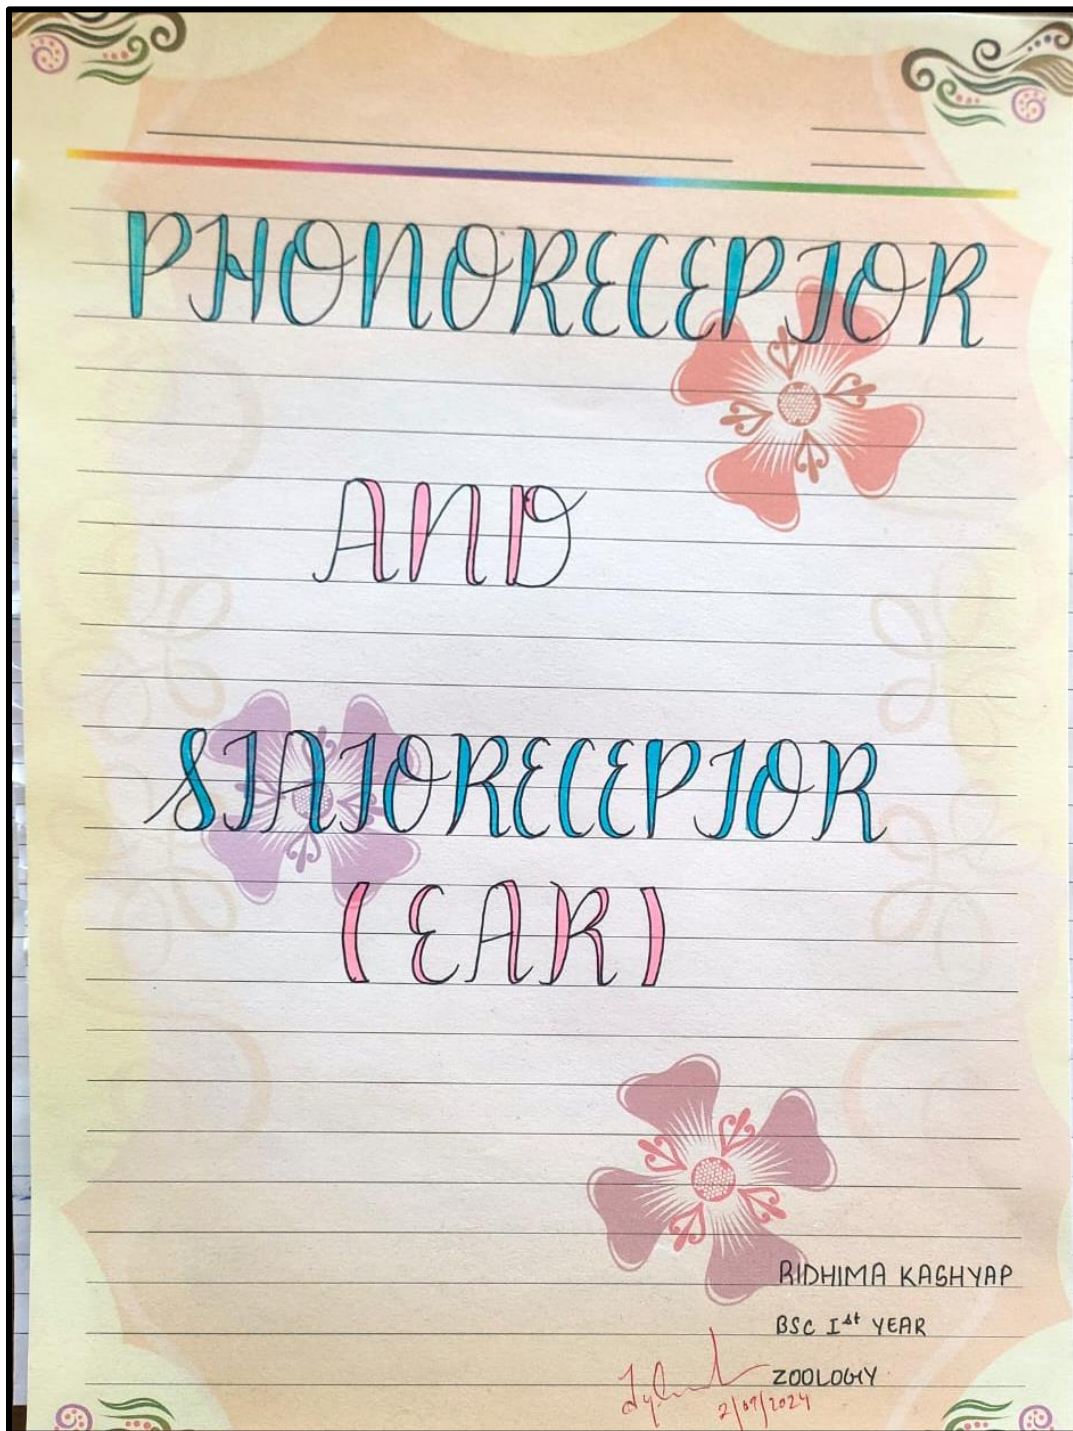 PHONORECEPTOR
AND
STATORECEPTOR
(EAR)
RIDHIMA KASHYAP
BSC Ist YEAR
ZOOLOGY
2/07/2024